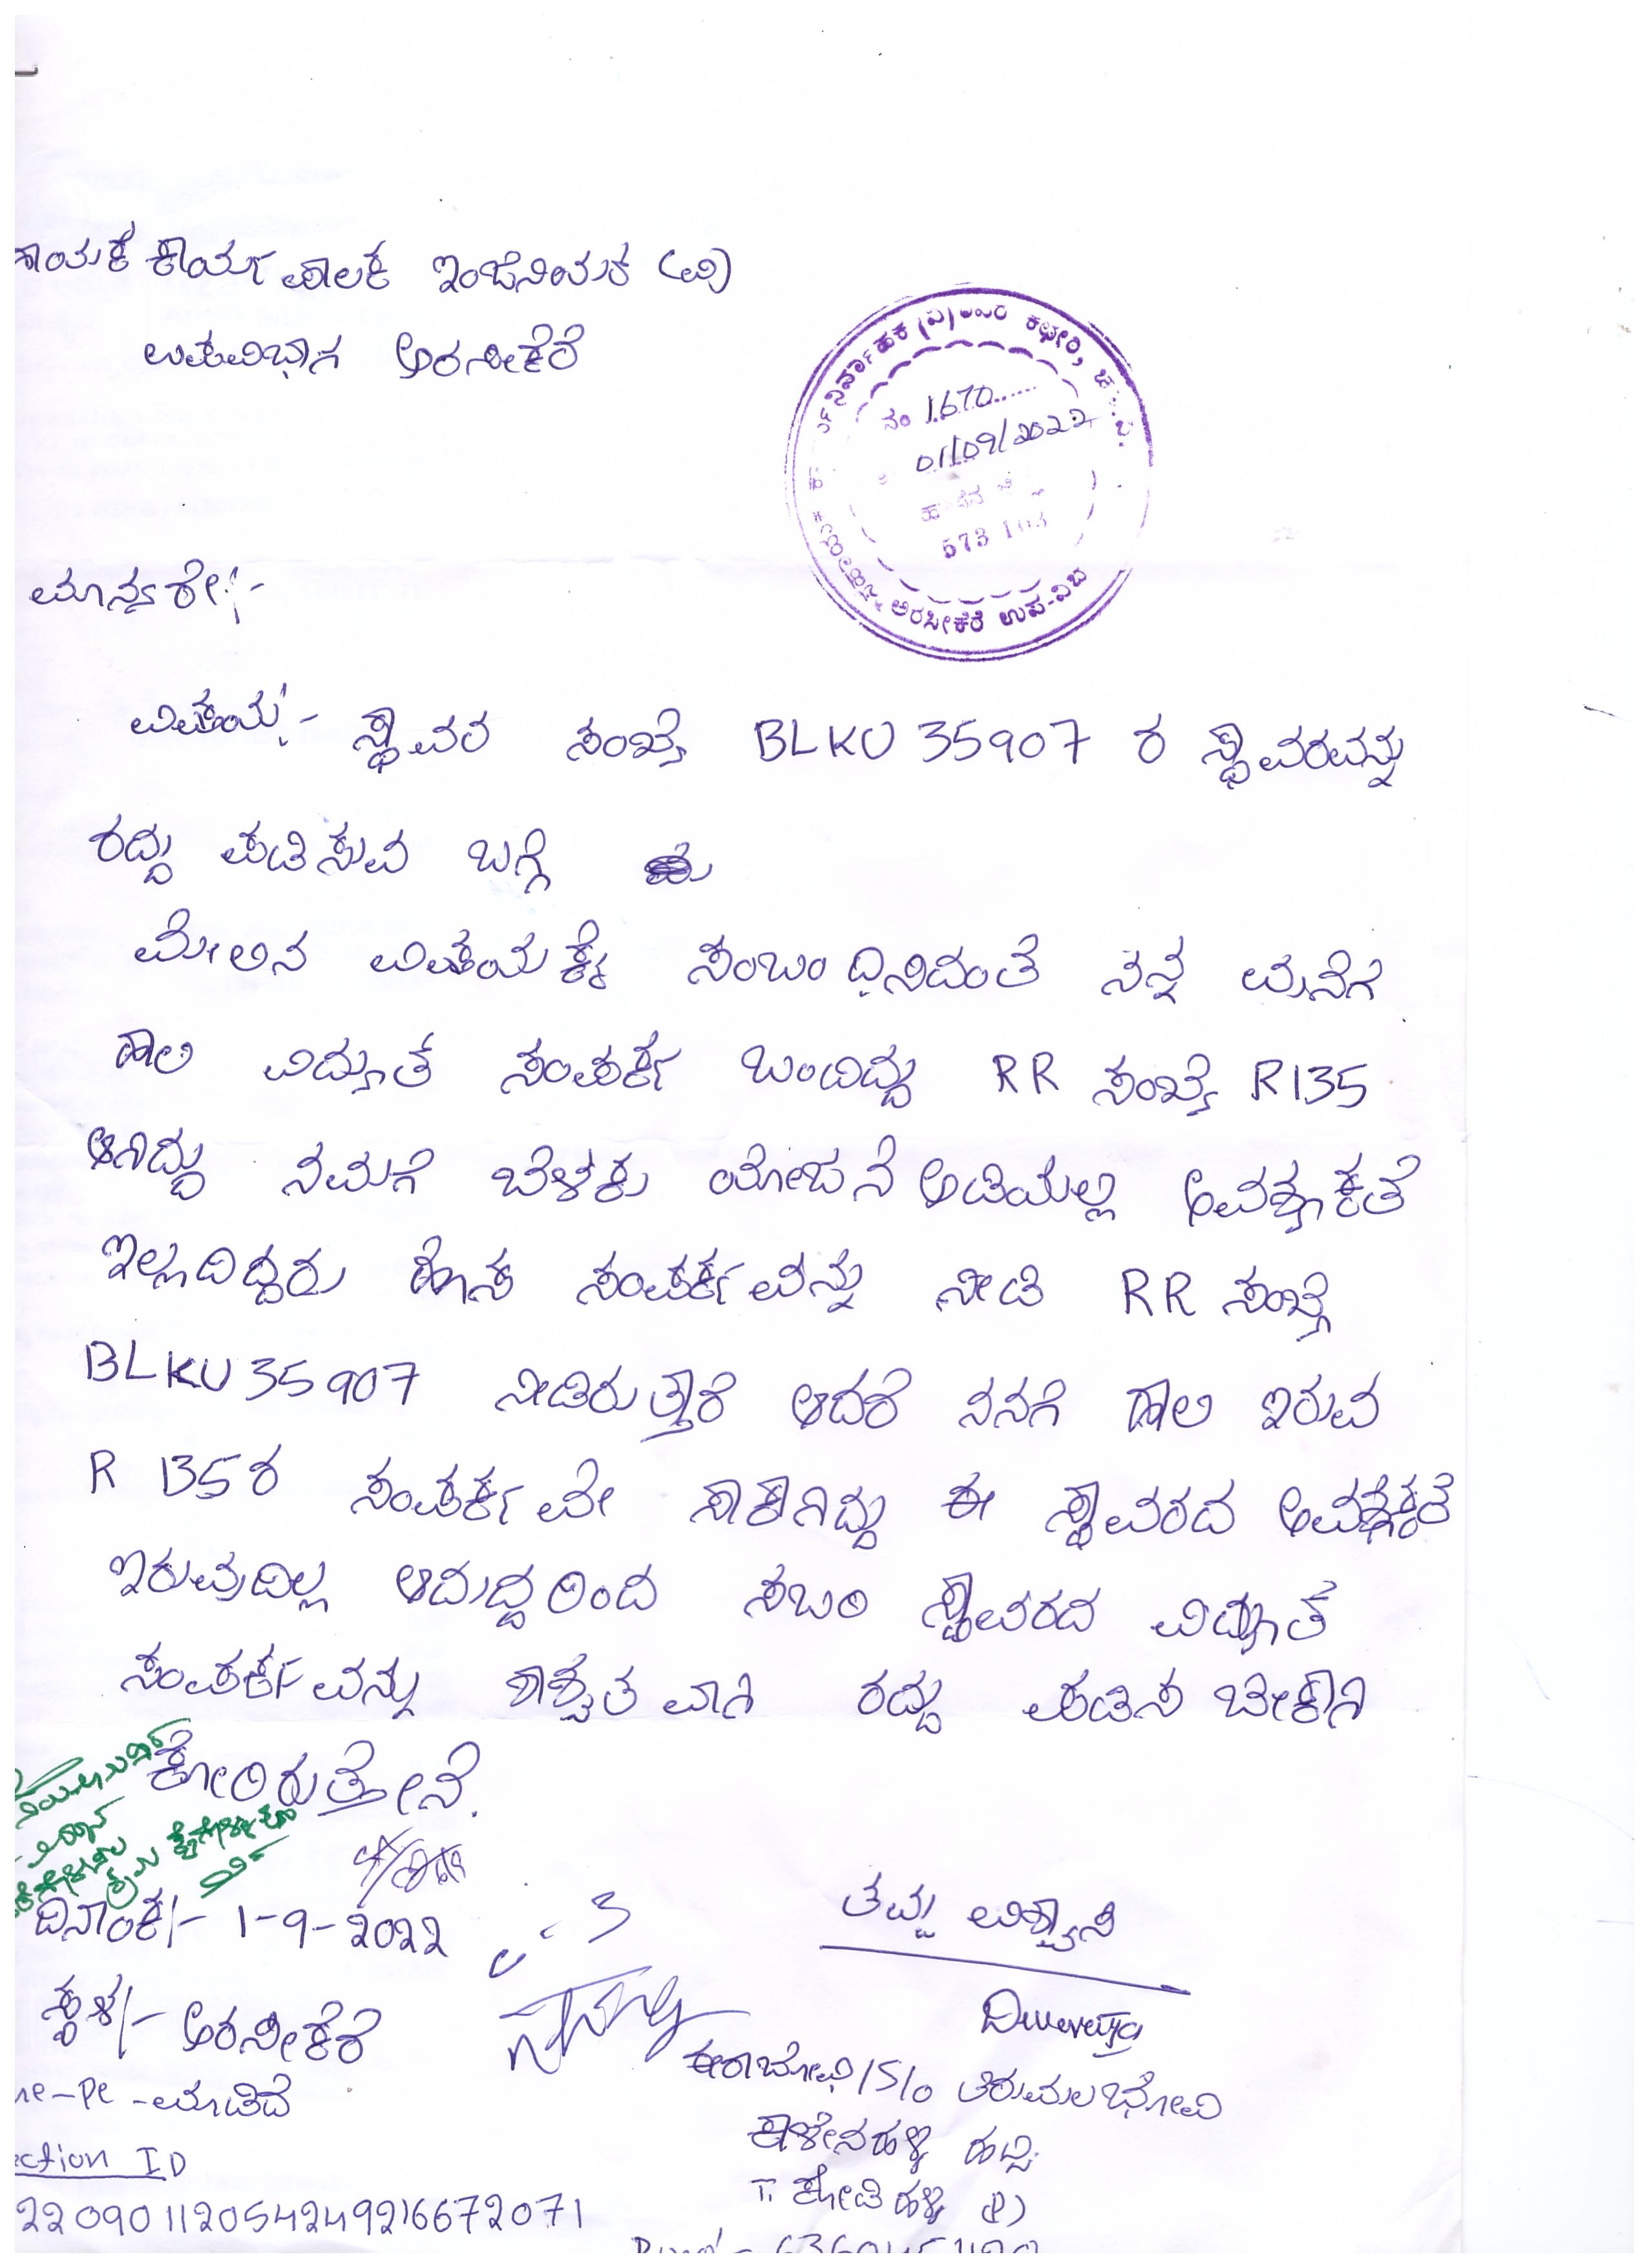 ಕಾರ್ಯಪಾಲಕ ಇಂಜಿನಿಯರ್ (ವಿ)
ಉಪವಿಭಾಗ ಅರಸೀಕೆರೆ
ಕಛೇರಿ,
ನಂ 1670
01/09/2022
573 103
ಅರಸೀಕೆರೆ ಉಪ-ವಿಭ
ಮಾನ್ಯರೇ:-
ವಿಷಯ:- ಸ್ಥಾವರ ಸಂಖ್ಯೆ BLKU 35907 ರ ಸ್ಥಾವರವನ್ನು
ರದ್ದು ಪಡಿಸುವ ಬಗ್ಗೆ
ಮೇಲಿನ ವಿಷಯಕ್ಕೆ ಸಂಬಂಧಿಸಿದಂತೆ ನನ್ನ ಮನೆಗೆ
ಹಾಲಿ ವಿದ್ಯುತ್ ಸಂಪರ್ಕ ಬಂದಿದ್ದು RR ಸಂಖ್ಯೆ R135
ಆಗಿದ್ದು ನಮಗೆ ಬೆಳಕು ಯೋಜನೆ ಅಡಿಯಲ್ಲಿ ಅವಶ್ಯಕತೆ
ಇಲ್ಲದಿದ್ದರು ಹೊಸ ಸಂಪರ್ಕವನ್ನು ನೀಡಿ RR ಸಂಖ್ಯೆ
BLKU 35907 ನೀಡಿರುತ್ತಾರೆ ಆದರೆ ನನಗೆ ಹಾಲಿ ಇರುವ
R 135 ರ ಸಂಪರ್ಕವೇ ಸಾಕಾಗಿದ್ದು ಈ ಸ್ಥಾವರದ ಅವಶ್ಯಕತೆ
ಇರುವುದಿಲ್ಲ ಆದುದ್ದರಿಂದ ಸಬರಿ ಸ್ಥಾವರದ ವಿದ್ಯುತ್
ಸಂಪರ್ಕವನ್ನು ಶಾಶ್ವತವಾಗಿ ರದ್ದು ಪಡಿಸಬೇಕಾಗಿ
ಕೋರಿರುತ್ತೇನೆ.
ದಿನಾಂಕ/- 1-9-2022
ತಮ್ಮ ವಿಶ್ವಾಸಿ
ಸ್ಥಳ/- ಅರಸೀಕೆರೆ
ಈರಾಬೋವಿ /S/o ತಿರುಮಲಭೋವಿ
ಕಾಳೇನಹಳ್ಳಿ ಹಟ್ಟಿ
T. ಕೋಡಿಹಳ್ಳಿ (P)
ne-Pe -ಮಾಡಿದೆ
ection ID
2209011205424921667​2071